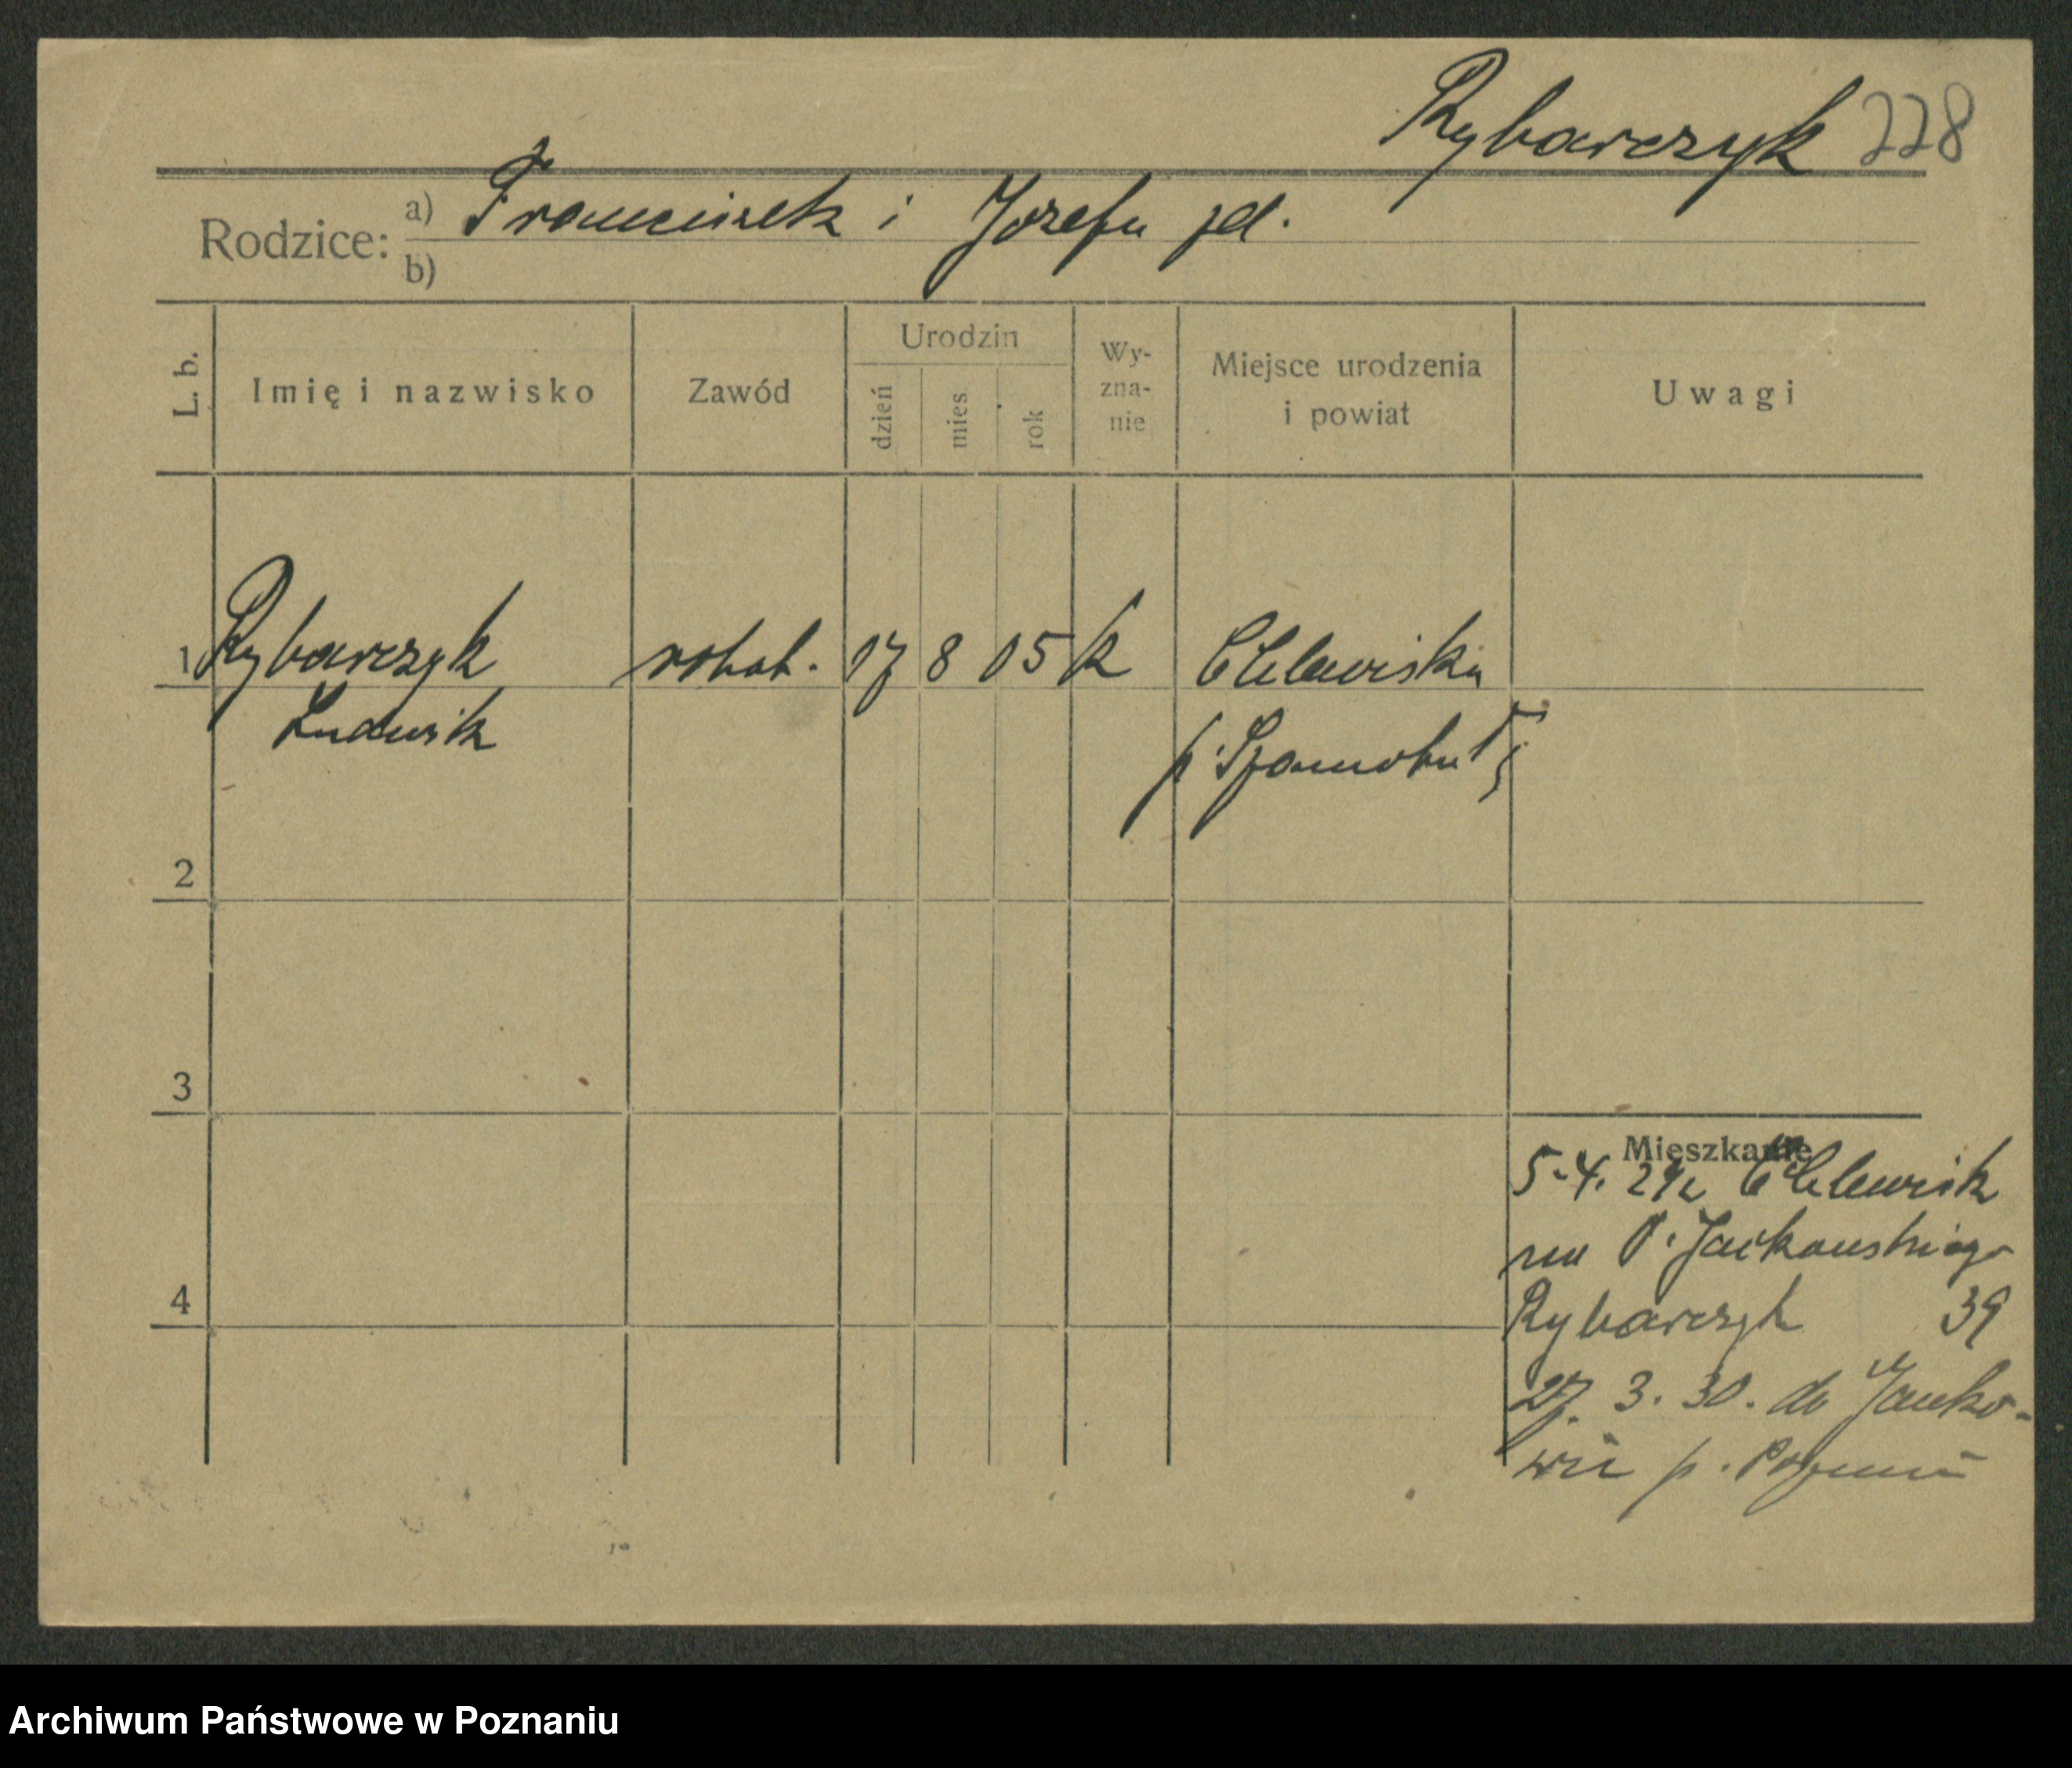 Rybarczyk 228
Rodzice: a) Franciszek i Józefa jd.
b)
L. b.
Imię i nazwisko
Zawód
Urodzin
dzień
mies.
rok
Wy-
zna-
nie
Miejsce urodzenia
i powiat
Uwagi
1 Rybarczyk robot. 17 8 05 k Chlewiska
Ludwik p. Szamotuły
2
3
4
Mieszkanie
5.4. 29 z Chlewisk
na P. Jackowskiego
Rybarczyk 39
27. 3. 30. do Janko-
wic p. Poznań
Archiwum Państwowe w Poznaniu